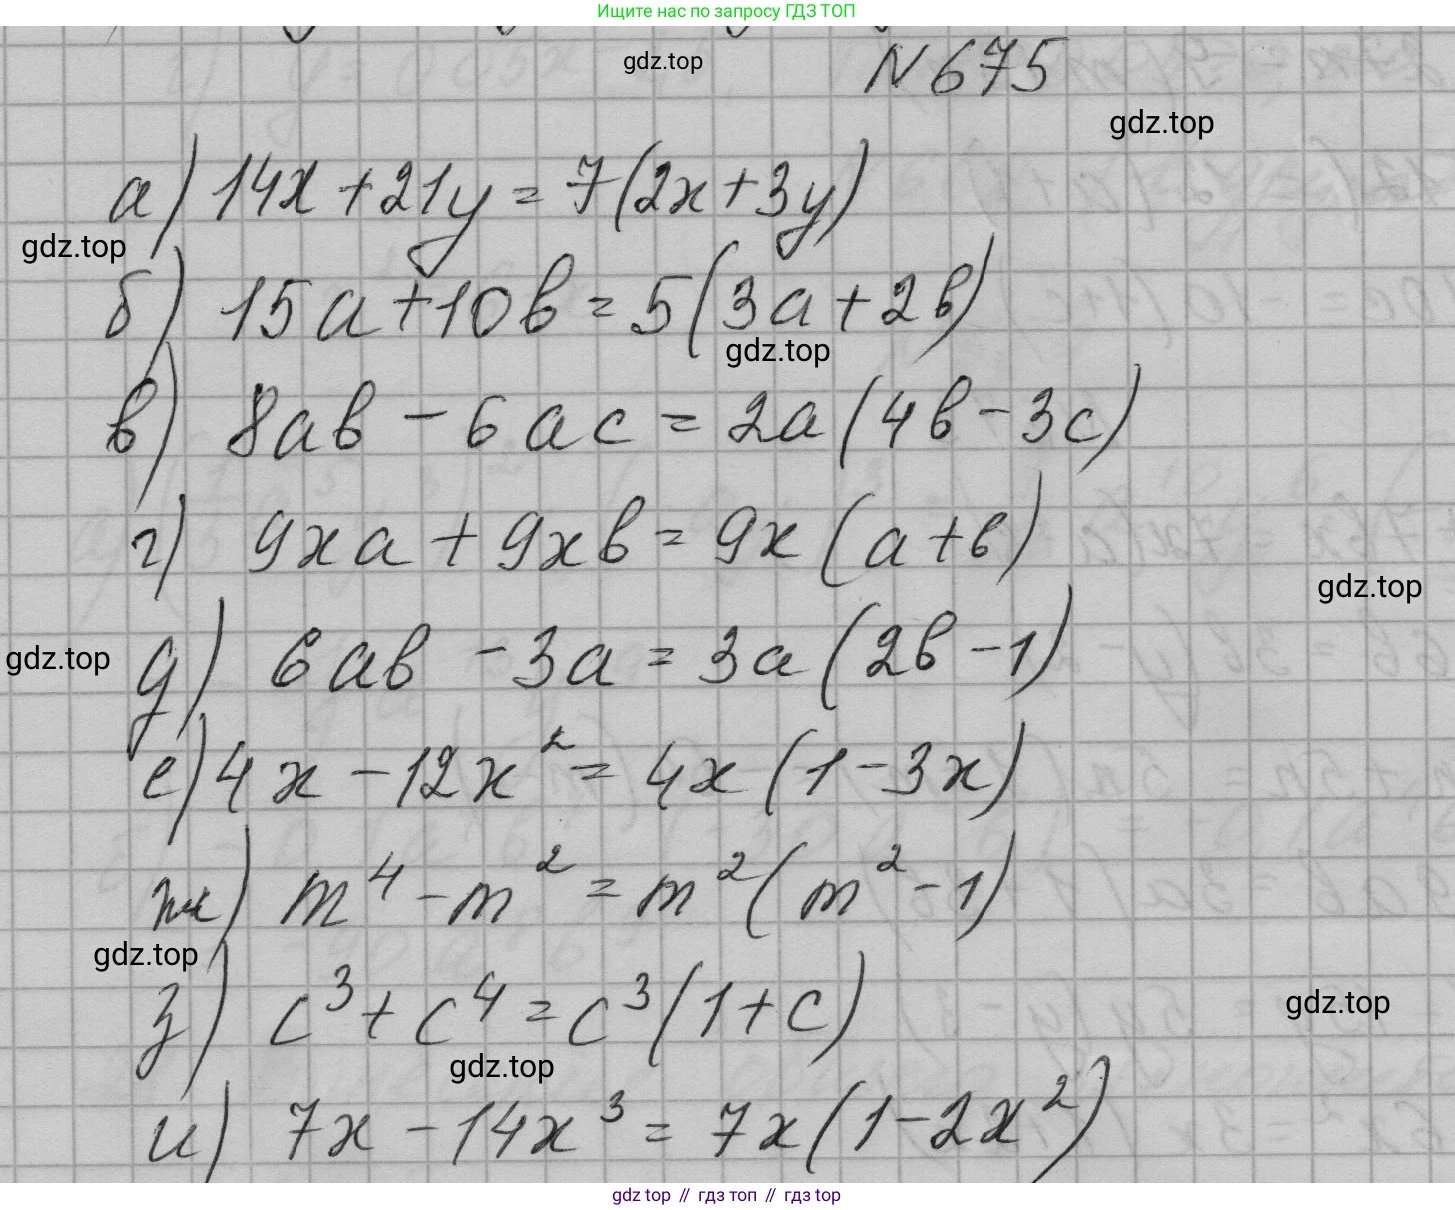 Ищите нас по запросу ГДЗ ТОП
gdz.top
N 675
gdz.top
а) 14x + 21y = 7(2x + 3y)
gdz.top
б) 15a + 10b = 5(3a + 2b)
gdz.top
в) 8ab - 6ac = 2a(4b - 3c)
г) 9xa + 9xb = 9x(a + b)
gdz.top
gdz.top
д) 6ab - 3a = 3a(2b - 1)
е) 4x - 12x² = 4x(1 - 3x)
ж) m⁴ - m² = m²(m² - 1)
gdz.top
з) c³ + c⁴ = c³(1 + c)
gdz.top
gdz.top
и) 7x - 14x³ = 7x(1 - 2x²)
gdz top // гдз топ // гдз top